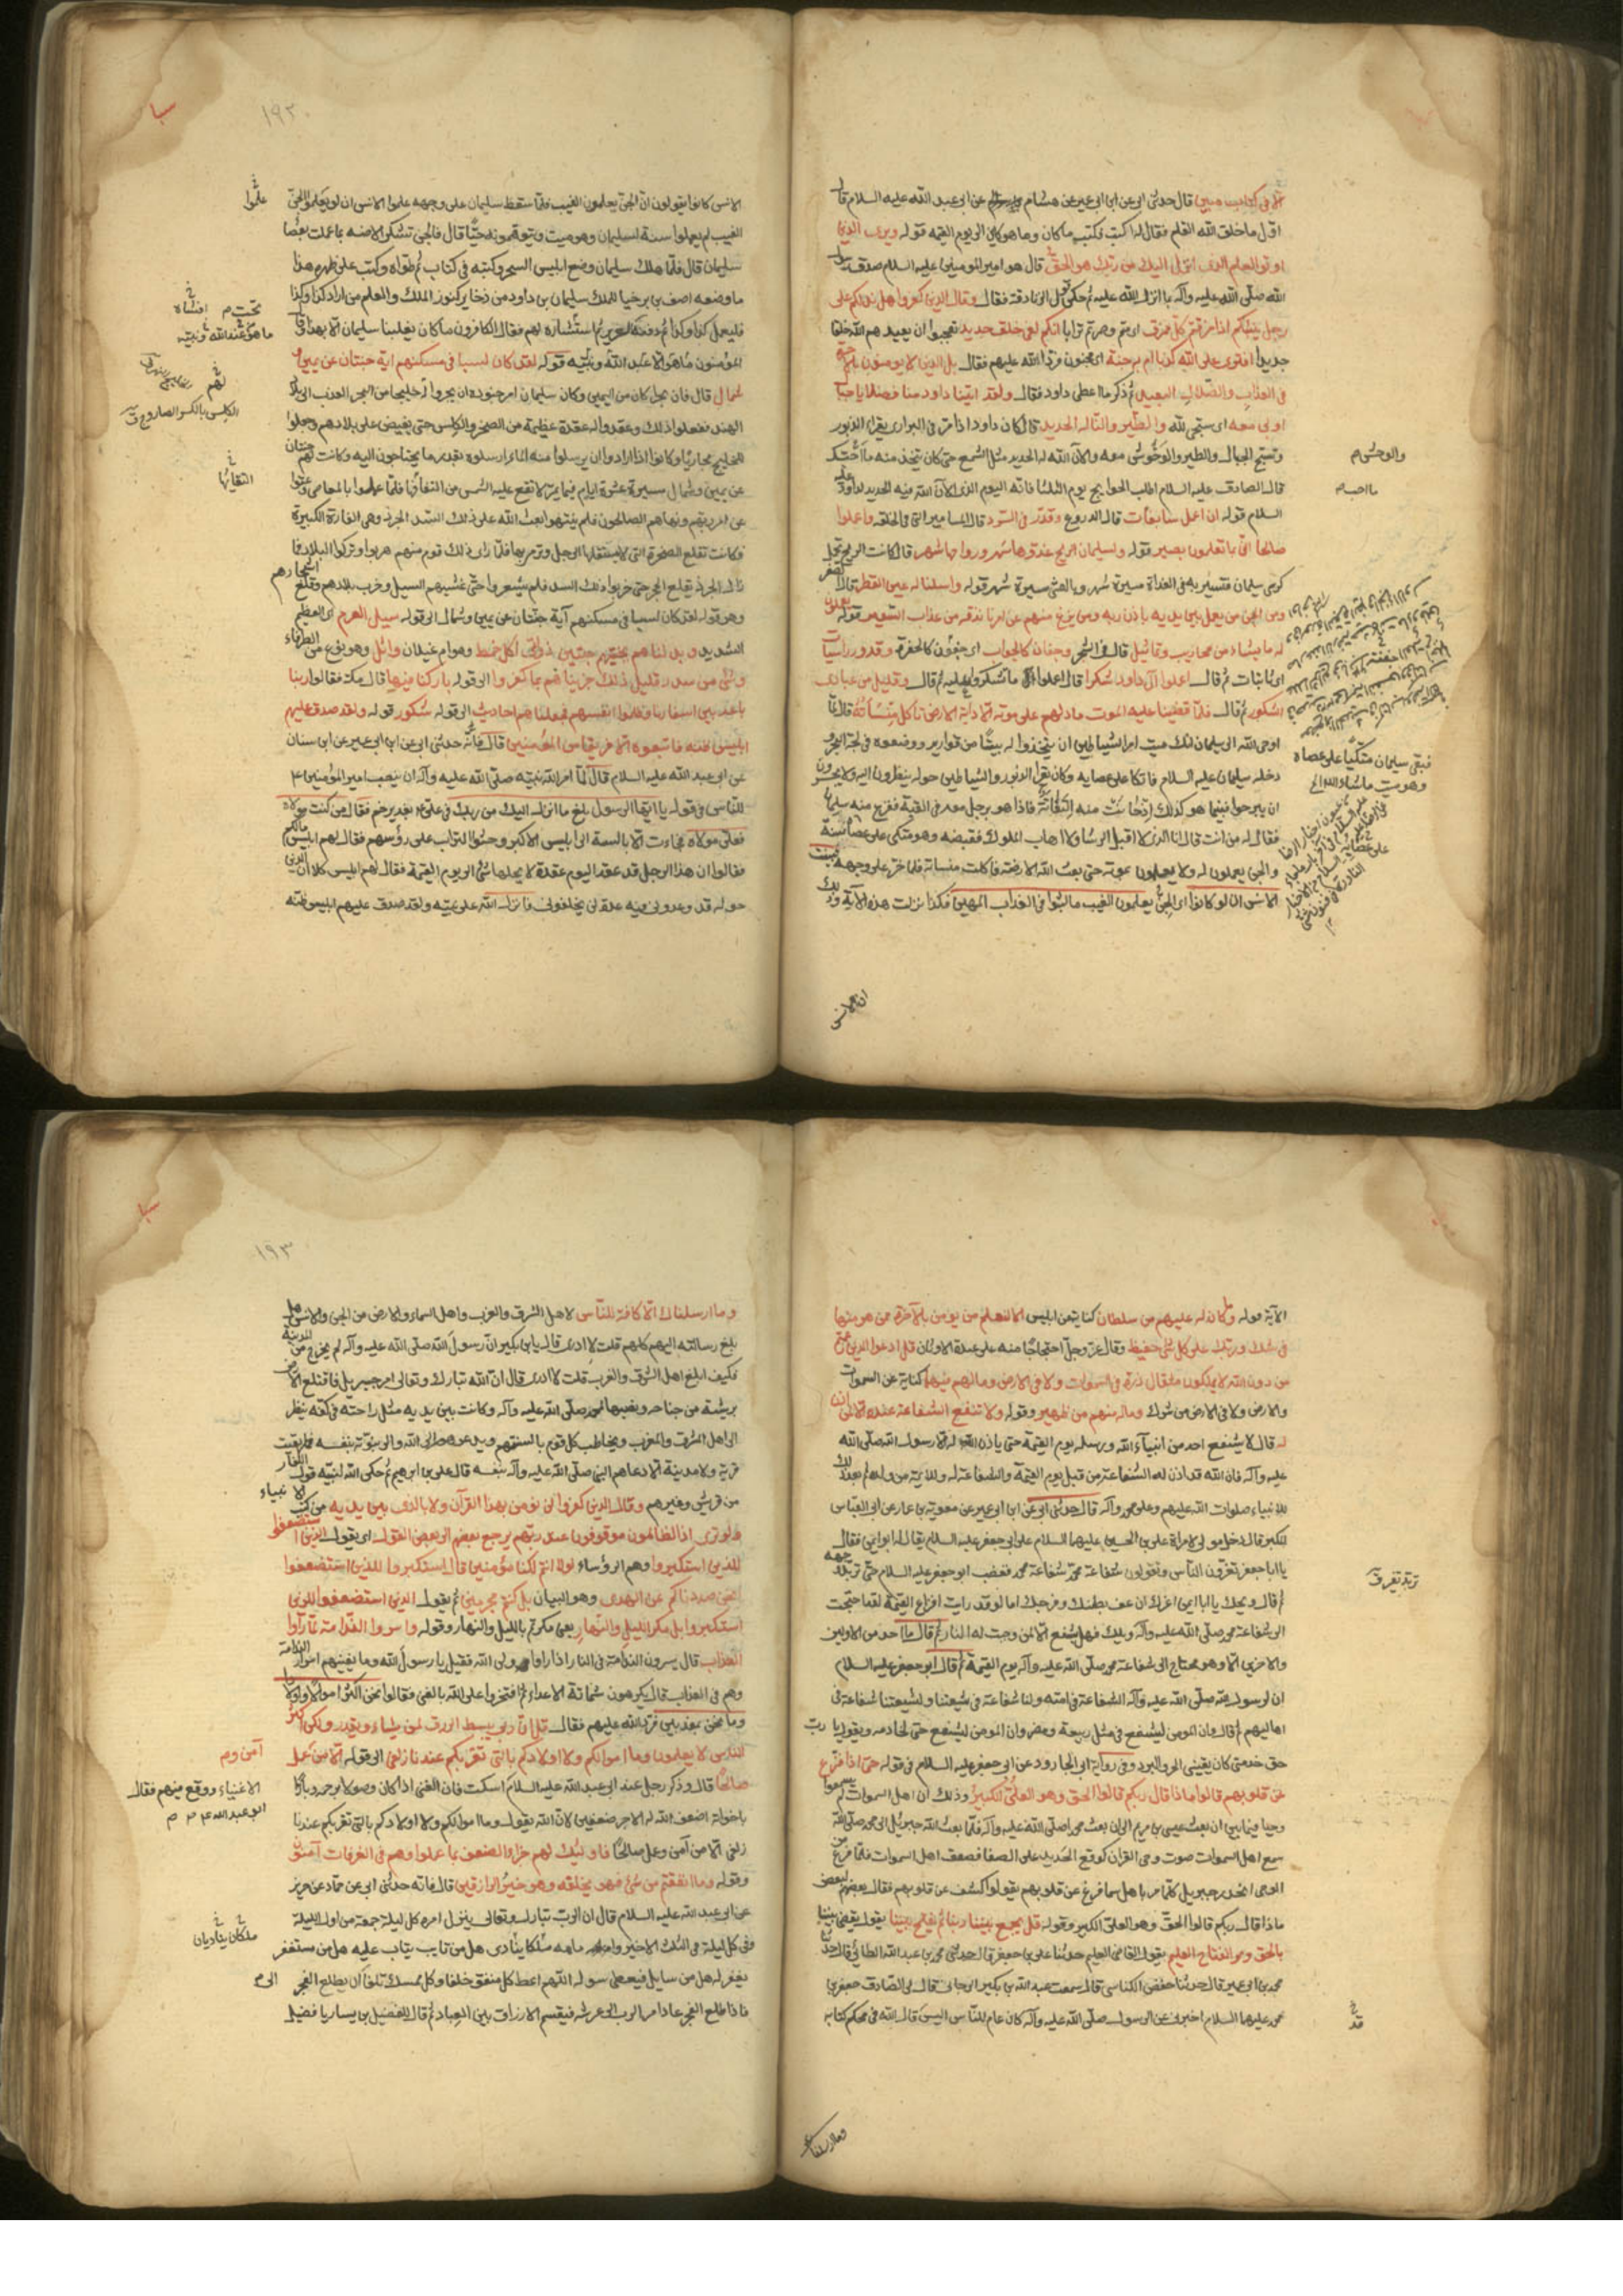 الا فى كتاب مبين قال حدثنى ابى عن ابن ابى عمير عن هشام عن ابى عبد الله عليه السلام قال
اوّل ما خلق الله القلم فقال له اكتب فكتب ما كان وما هو كاين الى يوم القيمة قوله ويرى الذين
اوتوا العلم الذى انزل اليك من ربك هو الحق قال هو امير المومنين عليه السلام صدق رسول
الله صلّى الله عليه وآله بما انزل الله عليه ثم حكى قول الزنادقة فقال وقال الذين كفروا هل ندلكم على
رجل ينبئكم اذا مزقتم كلّ ممزق اى متم وصرتم ترابا انكم لفى خلق جديد تعجبوا ان يعيدهم الله خلقا
جديدا افترى على الله كذبا ام به جنة اى مجنون فردّ الله عليهم فقال بل الذين لا يومنون بالآخرة
فى العذاب والضلال البعيد ثم ذكر ما اعطى داود فقال ولقد اتينا داود منا فضلا يا جبال
اوبى معه اى سبحى لله والطير والنّا له الحديد قال كان داود اذا مرّ فى البرارى يقرأ الزبور
وتسبح الجبال والطير والوحوش معه والان الله له الحديد مثل الشمع حتى كان يتخذ منه ما احب
قال الصادق عليه السلام اطلب الحوايج يوم الثلثا فانه اليوم الذى الان الله فيه الحديد لداود عليه
السلام قوله ان اعمل سابغات قال الدروع وقدّر فى السرد قال المسامير التى فى الحلقه واعملوا
صالحا انى بما تعملون بصير قوله ولسليمان الريح غدوها شهر ورواحها شهر قال كانت الريح تحمل
كرسى سليمان فتسير به فى الغداة مسيرة شهر وبالعشى مسيرة شهر قوله واسلنا له عين القطر قال الصفر
ومن الجن من يعمل بين يديه باذن ربه ومن يزغ منهم عن امرنا نذقه من عذاب السعير قوله يعملون
له ما يشاء من محاريب وتماثيل قال فى الشجر وجفان كالجواب اى جفون كالحفرة وقدور راسيات
اى ثابتات ثم قال اعملوا آل داود شكرا قال اعملوا ما تشكرون عليه ثم قال وقليل من عبادى
الشكور ثم قال فلمّا قضينا عليه الموت ما دلهم على موته الا دابة الارض تاكل منسأته قال لمّا
اوحى الله الى سليمان انك ميت امر الشياطين ان يتخذوا له بيتًا من قوارير ووضعوه فى لجة البحر
دخله سليمان عليه السلام فاتكا على عصايه وكان يقرأ الزبور والشياطين حوله ينظرون اليه ولا يجسرون
ان يبرحوا فبينما هو كذلك اذ حانت منه التفاتة فاذا هو برجل معه فى القبة ففزع منه سليمان
فقال له من انت قال انا الذى لا اقبل الرشا ولا اهاب الملوك فقبضه وهو متكى على عصاه سنة
والجن يعملون له ولا يعلمون بموته حتى بعث الله الارضة فاكلت منساته فلما خرّ على وجهه تبينت
الانس ان لو كانوا اى الجنّ يعلمون الغيب ما لبثوا فى العذاب المهين فكذا نزلت هذه الآية وذلك
ان الانس
والوحش م
ما احب م
فبقى سليمان متكيًا على عصاه
وهو ميت ما شاء الله الخ
سبا
١٩٢
الانس كانوا يقولون ان الجنّ يعلمون الغيب فلمّا سقط سليمان على وجهه علموا الانس ان لو يعلم الجن
الغيب لم يعملوا سنة لسليمان وهو ميت ويتوهمونه حيًّا قال فالجن تشكر الارضة بما عملت بعصا
سليمان قال فلمّا هلك سليمان وضع ابليس السحر وكتبه فى كتاب ثم طواه وكتب على ظهره هذا
ما وضعه اصف بن برخيا للملك سليمان بن داود من ذخاير كنوز الملك والعلم من اراد كذا وكذا
فليعمل كذا وكذا ثم دفنه السرير ثم استشاره لهم فقال الكافرون ما كان يغلبنا سليمان الا بهذا وقال
المؤمنون ما هو الا عبد الله ونبيّه قوله لقد كان لسبا فى مسكنهم اية جنتان عن يمين و
شمال قال فان بحرا كان من اليمن وكان سليمان امر جنوده ان يجروا لهم خليجا من البحر العذب الى بلاد
الهند ففعلوا ذلك وعقدوا له عقدة عظيمة من الصخر والكلس حتى يفيض على بلادهم وجعلوا
للخليج مجاريًا وكانوا اذا ارادوا ان يرسلوا منه الماء ارسلوه بقدر ما يحتاجون اليه وكانت لهم جنتان
عن يمين وشمال مسيرة عشرة ايام فيما يمر لا تقع عليه الشمس من التفافها فلمّا عملوا بالمعاصى وعتوا
عن امر ربهم ونهاهم الصالحون فلم ينتهوا بعث الله على ذلك السّد الجرذ وهى الفارة الكبيرة
فكانت تقلع الصخرة التى لا يستقلها الرجل وترمى بها فلمّا راى ذلك قوم منهم هربوا وتركوا البلاد فما
زال الجرذ تقلع الحجر حتى خربوا ذلك السد فلم يشعروا حتى غشيهم السيل وخرب بلادهم وقلع اشجارهم
وهو قوله لقد كان لسبا فى مسكنهم آية جنتان عن يمين وشمال الى قوله سيل العرم اى العظيم
الشديد وبدلناهم بجنتيهم جنتين ذواتى اكل خمط وهو ام غيلان واثل وهو نوع من الطرفاء
وشئ من سدر قليل ذلك جزيناهم بما كفروا الى قوله باركنا فيها قال مكة فقالوا ربنا
باعد بين اسفارنا وظلموا انفسهم فجعلناهم احاديث الى قوله شكور قوله ولقد صدق عليهم
ابليس ظنه فاتبعوه الا فريقا من المؤمنين قال فانّه حدثنى ابى عن ابن ابى عمير عن ابن سنان
عن ابى عبد الله عليه السلام قال لمّا امر الله نبيّه صلّى الله عليه وآله ان ينصب امير المؤمنين ع
للنّاس فى قوله يا ايّها الرسول بلغ ما انزل اليك من ربك فى علىّ بغدير خم فقال من كنت مولاه
فعلى مولاه فجاءت الابالسة الى ابليس الاكبر وحثوا التراب على رؤسهم فقال لهم ابليس مالكم
فقالوا ان هذا الرجل قد عقد اليوم عقدة لا يحلها شئ الى يوم القيمة فقال لهم ابليس كلا ان الذين
حوله قد وعدونى فيه عدة لن يخلفونى فانزل الله على نبيّه ولقد صدق عليهم ابليس ظنه
علموا
تحت م افشاه
ما هو عند الله ونبيّه
لهم
الكلس بالكسر الصاروج ق
التفافها
الآية قوله وما كان له عليهم من سلطان كناية عن ابليس الا لنعلم من يومن بالآخرة ممن هو منها
فى شك وربّك على كل شئ حفيظ وقال عزّ وجلّ احتجاجًا منه على عبدة الاوثان قل ادعوا الذين زعمتم
من دون الله لا يملكون مثقال ذرة فى السموات ولا فى الارض وما لهم فيهما كناية عن السموات
والارض ولا فى الارض من شرك وماله منهم من ظهير وقوله ولا تنفع الشفاعة عنده الا لمن اذن
له قال لا يشفع احد من انبياء الله ورسله يوم القيمة حتى ياذن الله له الا رسول الله صلّى الله
عليه وآله فان الله قد اذن له فى الشفاعة من قبل يوم القيمة والشفاعة له وللائمة من ولده ثم بعد ذلك
للانبياء صلوات الله عليهم وعلى محمد وآله قال حدثنى ابى عن ابن ابى عمير عن معوية بن عمار عن ابى العبّاس
المكبر قال دخل مولى لامراة على بن الحسين عليهما السلام على ابى جعفر عليه السلام يقال له ابو ايمن فقال
يا ابا جعفر تغرّون النّاس وتقولون شفاعة محمد شفاعة محمد فغضب ابو جعفر عليه السلام حتى تربّد وجهه
ثم قال ويحك يا ابا ايمن اغرك ان عف بطنك وفرجك اما لو قد رايت افزاع القيمة لقد احتجت
الى شفاعة محمد صلّى الله عليه وآله ويلك فهل يشفع الا لمن وجبت له النار ثم قال ما احد من الاولين
والاخرين الا وهو محتاج الى شفاعة محمد صلّى الله عليه وآله يوم القيمة ثم قال ابو جعفر عليه السلام
ان لرسول الله صلّى الله عليه وآله الشفاعة فى امته ولنا شفاعة فى شيعتنا ولشيعتنا شفاعة فى
اهاليهم ثم قال وان المومن ليشفع فى مثل ربيعة ومضر وان المومن ليشفع حتى لخادمه ويقول يا رب
حق خدمتى كان يقينى الحر والبرد وفى رواية ابى الجارود عن ابى جعفر عليه السلام فى قوله حتى اذا فزع
عن قلوبهم قالوا ماذا قال ربكم قالوا الحق وهو العلىّ الكبير وذلك ان اهل السموات لم يسمعوا
وحيا فيما بين ان بعث عيسى بن مريم الى ان بعث محمد صلّى الله عليه وآله فلمّا بعث الله جبرئيل الى محمد صلّى الله
سمع اهل السموات صوت وحى القران كوقع الحديد على الصفا فصعق اهل السموات فلمّا فرغ من
الوحى انحدر جبريل كلّما مر باهل سما فزع عن قلوبهم يقول كشف عن قلوبهم فقال بعضهم لبعض
ماذا قال ربكم قالوا الحقّ وهو العلىّ الكبير وقوله قل يجمع بيننا ربنا ثم يفتح بيننا يقول يقضى بيننا
بالحق وهو الفتاح العليم يقول القاضى العليم حدثنا على بن جعفر قال حدثنى محمد بن عبد الله الطائى قال حدثنا
محمد بن ابى عمير قال حدثنا حفص الكناسى قال سمعت عبد الله بن بكير الرجانى قال قال لى الصادق جعفر بن
محمد عليهما السلام اخبرنى عن الرسول صلّى الله عليه وآله كان عام للنّاس اليس قال الله فى محكم كتابه
وما ارسلناك
تربد تغير ق
قد
سبا
١٩٣
وما ارسلناك الا كافة للنّاس لاهل الشرق والغرب واهل السماء والارض من الجن والانس هل
بلغ رسالته اليهم كلهم قلت لا ادرى قال يا بن بكير انّ رسول الله صلّى الله عليه وآله لم يخرج من المدينة
فكيف ابلغ اهل الشرق والغرب قلت لا ادرى قال انّ الله تبارك وتعالى امر جبريل فاقتلع الارض
بريشة من جناحه ونصبها لمحمد صلّى الله عليه وآله وكانت بين يديه مثل راحته فى كفّه ينظر
الى اهل الشرق والغرب ويخاطب كل قوم بالسنتهم ويدعوهم الى الله والى نبوّته بنفسه فما بقيت
قرية ولا مدينة الا دعاهم النبى صلّى الله عليه وآله بنفسه قال على بن ابرهيم ثم حكى الله لنبيّه قول الكفار
من قريش وغيرهم وقال الذين كفروا لن نومن بهذا القرآن ولا بالذى بين يديه من كتب الانبياء
ولو ترى اذ الظالمون موقوفون عند ربّهم يرجع بعضهم الى بعض القول اى يقول الذين استضعفوا
للذين استكبروا وهم الرؤساء لولا انتم لكنا مؤمنين قال الذين استكبروا للذين استضعفوا
انحن صددناكم عن الهدى وهو البيان بل كنتم مجرمين ثم يقول الذين استضعفوا للذين
استكبروا بل مكر الليل والنّهار يعنى مكرتم بالليل والنهار وقوله واسروا النّدامة لمّا راوا
العذاب قال يسرون الندامة فى النار اذا راوا ولى الله فقيل يا رسول الله وما يغنيهم اسرار الندامة
وهم فى العذاب قال يكرهون شماتة الاعداء ثم افتخروا على الله بالغنى فقالوا نحن اكثر اموالا واولادا
وما نحن بمعذبين فردّ الله عليهم فقال قل ان ربى يبسط الرزق لمن يشاء ويقدر ولكن اكثر
النّاس لا يعلمون وما اموالكم ولا اولادكم بالتى تقربكم عندنا زلفى الى قوله الا من عمل
صالحًا قال وذكر رجل عند ابى عبد الله عليه السلام اسكت فان الغنى اذا كان وصولا برحمه وبارّا
باخوانه اضعف الله له الاجر ضعفين لانّ الله يقول وما اموالكم ولا اولادكم بالتى تقربكم عندنا
زلفى الا من آمن وعمل صالحًا فاولئك لهم جزاء الضعف بما عملوا وهم فى الغرفات آمنون
وقوله وما انفقتم من شئ فهو يخلفه وهو خير الرازقين قال فانّه حدثنى ابى عن حمّاد عن حريز
عن ابى عبد الله عليه السلام قال ان الرب تبارك وتعالى ينزل امره كل ليلة جمعة من اول الليلة
وفى كل ليلة فى الثلث الاخير وامامه ملكا ينادى هل من تايب يتاب عليه هل من مستغفر
يغفر له هل من سايل فيعطى سوله اللهم اعط كل منفق خلفا وكل ممسك تلفا الى ان يطلع الفجر
فاذا طلع الفجر عاد امر الرب الى عرشه فيقسم الارزاق بين العباد ثم قال للفضيل بن يسار يا فضيل
آمن و م
الاغنياء ووقع فيهم فقال
ابو عبد الله ع م م
ملكان يناديان